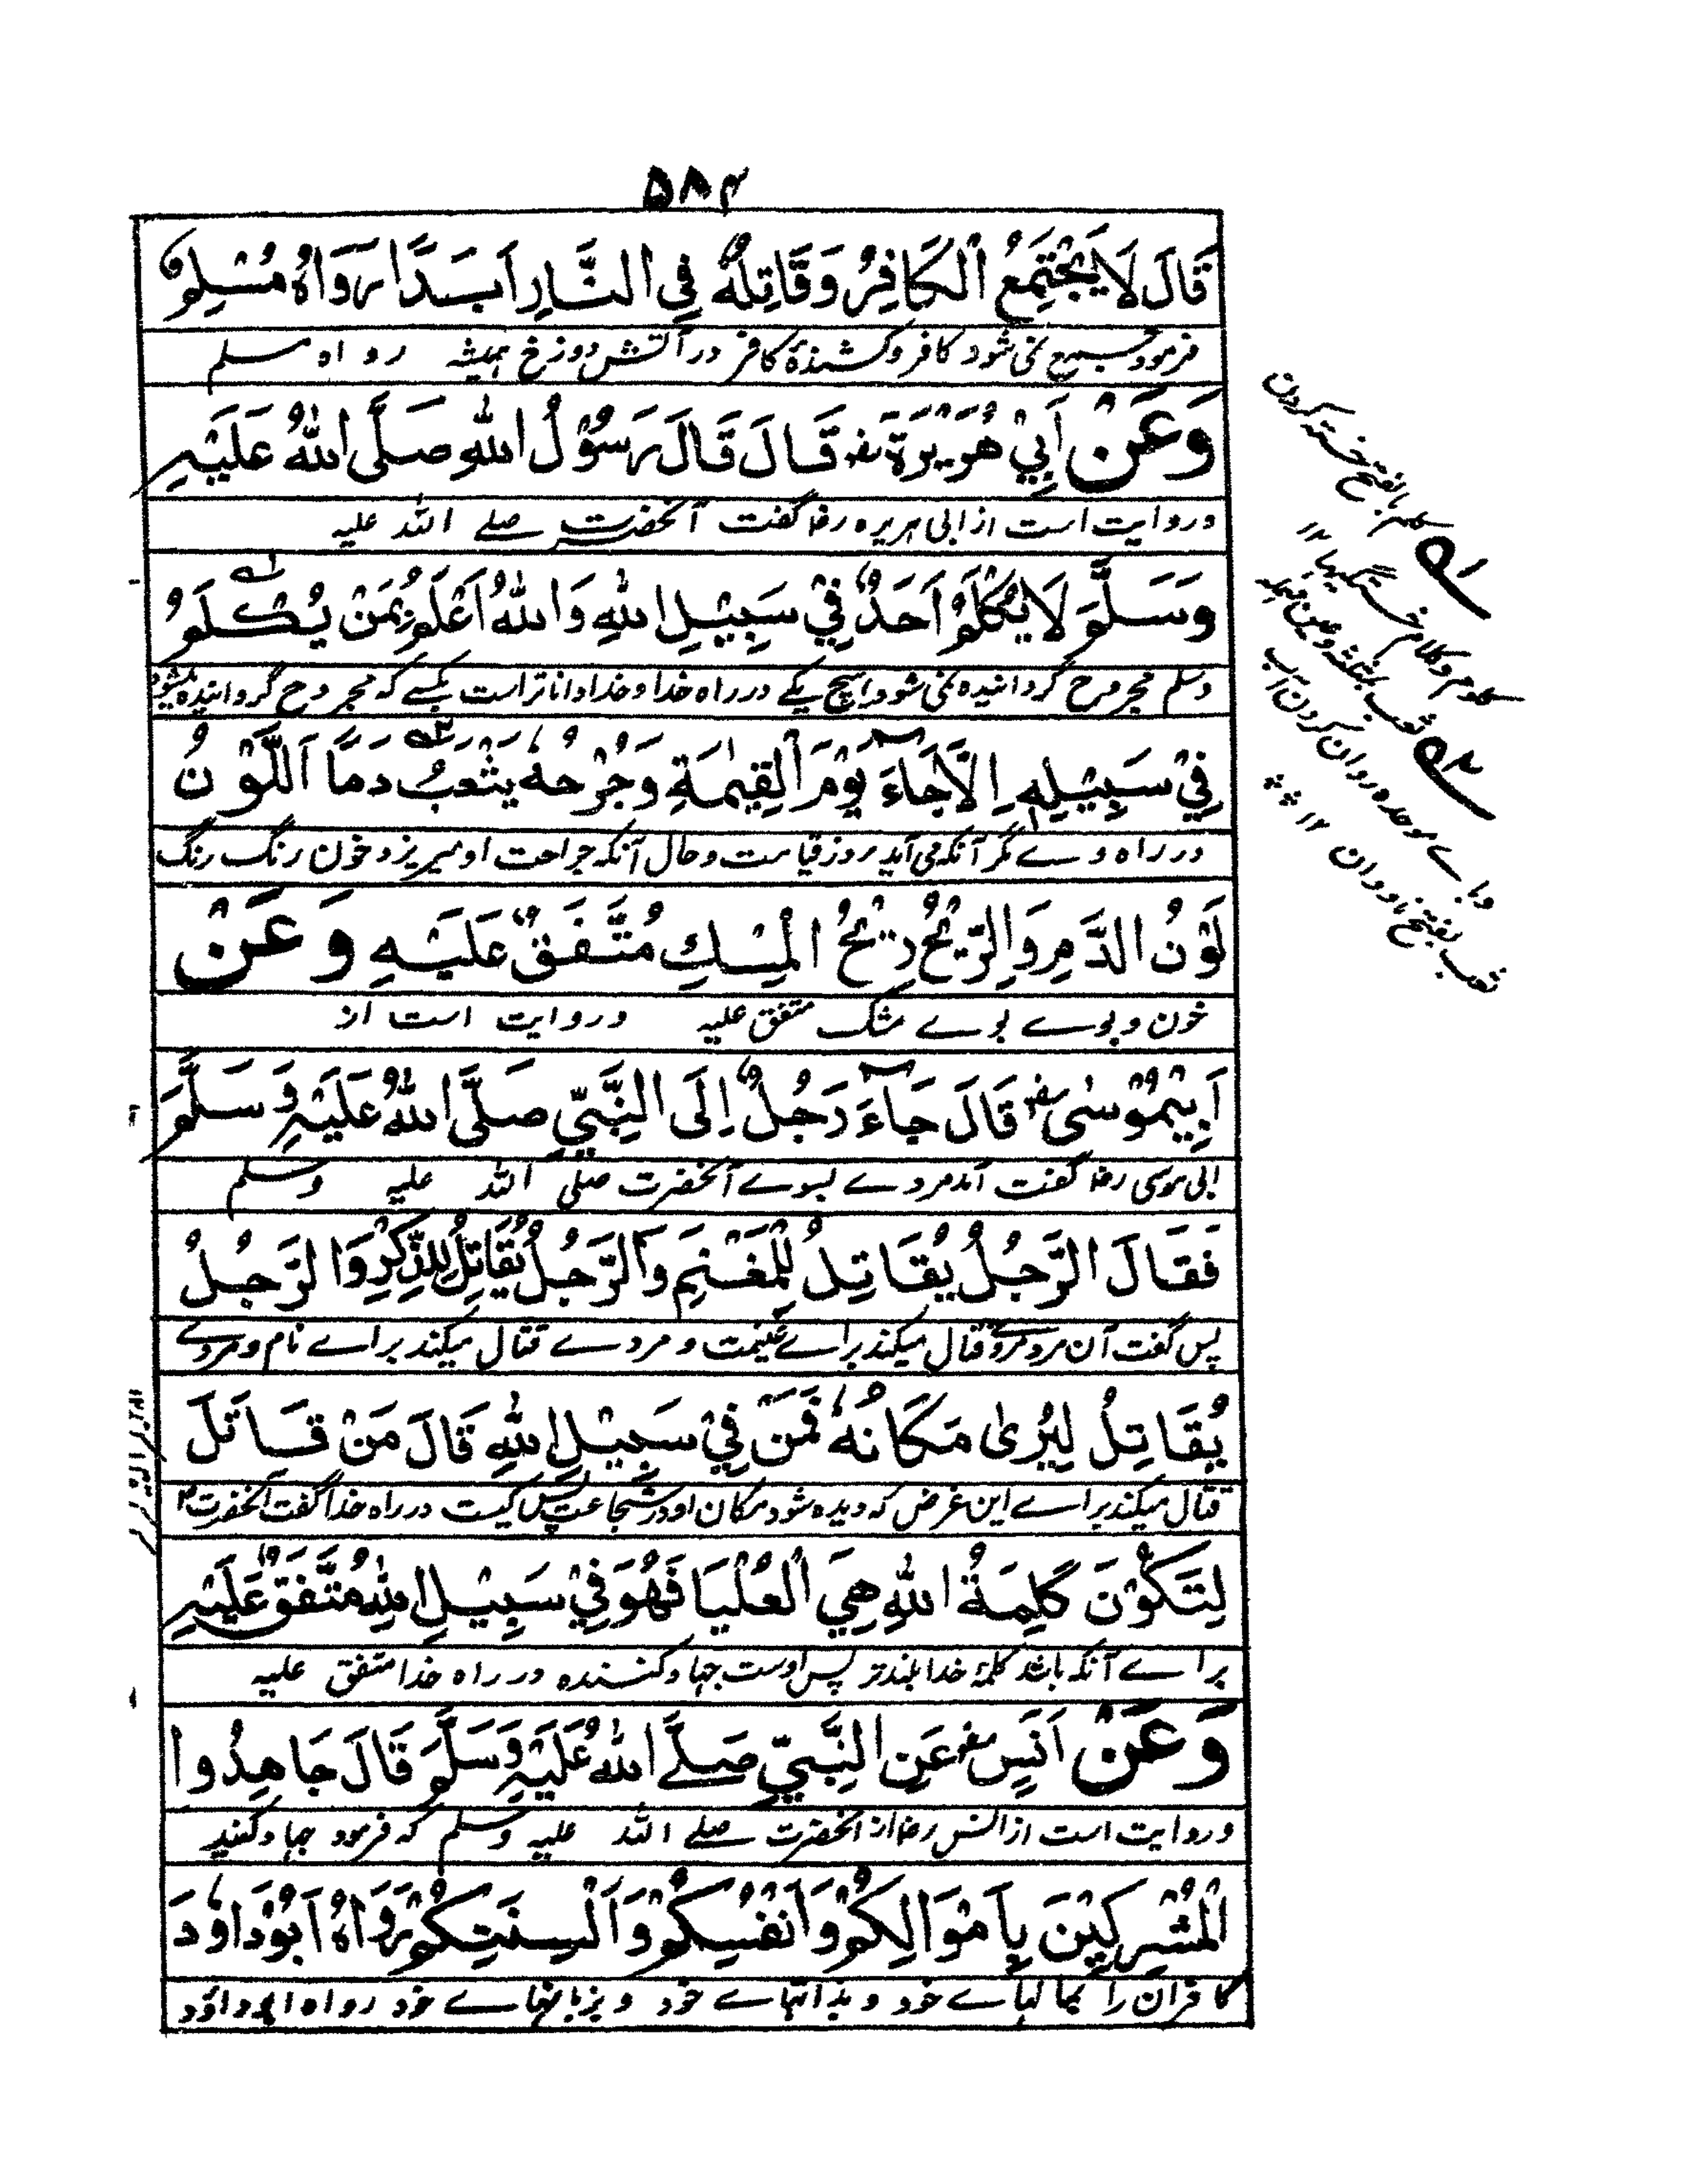 ۵۸۴
قَالَ لَا يَجْتَمِعُ الْكَافِرُ وَقَاتِلُهٗ فِي النَّارِ اَبَدًا رَوَاهُ مُسْلِمٌ
فرمود جمع نمی شود کافر و کشندۀ کافر در آتش دوزخ همیشه رواه مسلم
وَعَنْ اَبِيْ هُرَيْرَةَ رض قَالَ قَالَ رَسُوْلُ اللّٰهِ صَلَّى اللّٰهُ عَلَيْهِ
و روایت است از ابی هریره رض گفت آنحضرت صلے اللّٰه علیه
وَسَلَّمَ لَا يُكْلَمُ اَحَدٌ فِيْ سَبِيْلِ اللّٰهِ وَاللّٰهُ اَعْلَمُ بِمَنْ يُكْلَمُ
وسلم مجروح گردانیده نمی شود هیچ یکے در راه خدا و خدا داناتر است بکسے که مجروح گردانیده میشود
فِيْ سَبِيْلِهٖ اِلَّا جَاءَ يَوْمَ الْقِيٰمَةِ وَجُرْحُهٗ يَثْعَبُ دَمًا اَللَّوْنُ
در راه وے مگر آنکه می آید بروز قیامت و حال آنکه جراحت او میریزد خون رنگ رنگ
لَوْنُ الدَّمِ وَالرِّيْحُ رِيْحُ الْمِسْكِ مُتَّفَقٌ عَلَيْهِ وَعَنْ
خون و بوے بوے مشک متفق علیه و روایت است از
اَبِيْ مُوْسٰى رض قَالَ جَاءَ رَجُلٌ اِلَى النَّبِيِّ صَلَّى اللّٰهُ عَلَيْهِ وَسَلَّمَ
ابی موسی رض گفت آمد مردے بسوے آنحضرت صلی اللّٰه علیه وسلم
فَقَالَ الرَّجُلُ يُقَاتِلُ لِلْمَغْنَمِ وَالرَّجُلُ يُقَاتِلُ لِلذِّكْرِ وَالرَّجُلُ
پس گفت آن مرد مردے قتال میکند براے غنیمت و مردے قتال میکند براے نام و مردے
يُقَاتِلُ لِيُرٰى مَكَانُهٗ فَمَنْ فِيْ سَبِيْلِ اللّٰهِ قَالَ مَنْ قَاتَلَ
قتال میکند براے این غرض که دیده شود مکان او در شجاعت پس کیست در راه خدا گفت آنحضرت
لِتَكُوْنَ كَلِمَةُ اللّٰهِ هِيَ الْعُلْيَا فَهُوَ فِيْ سَبِيْلِ اللّٰهِ مُتَّفَقٌ عَلَيْهِ
براے آنکه باشد کلمۀ خدا بلندتر پس اوست جهاد کننده در راه خدا متفق علیه
وَعَنْ اَنَسٍ رض عَنِ النَّبِيِّ صَلَّے اللّٰهُ عَلَيْهِ وَسَلَّمَ قَالَ جَاهِدُوا
و روایت است از انس رض از آنحضرت صلے اللّٰه علیه وسلم که فرمود جهاد کنید
الْمُشْرِكِيْنَ بِاَمْوَالِكُمْ وَاَنْفُسِكُمْ وَاَلْسِنَتِكُمْ رَوَاهُ اَبُوْدَاوٗدَ
کافران را بمالهاے خود و بذاتهاے خود و بزبانهاے خود رواه ابوداؤد
۱ کلم بالفتح خسته کردن
کلوم و کلام خستگیها ۱۲
۲ ثعب بمثلثه و عین مهمله
و باے موحده روان کردن آب
ثعب بفتح ناودان ۱۲